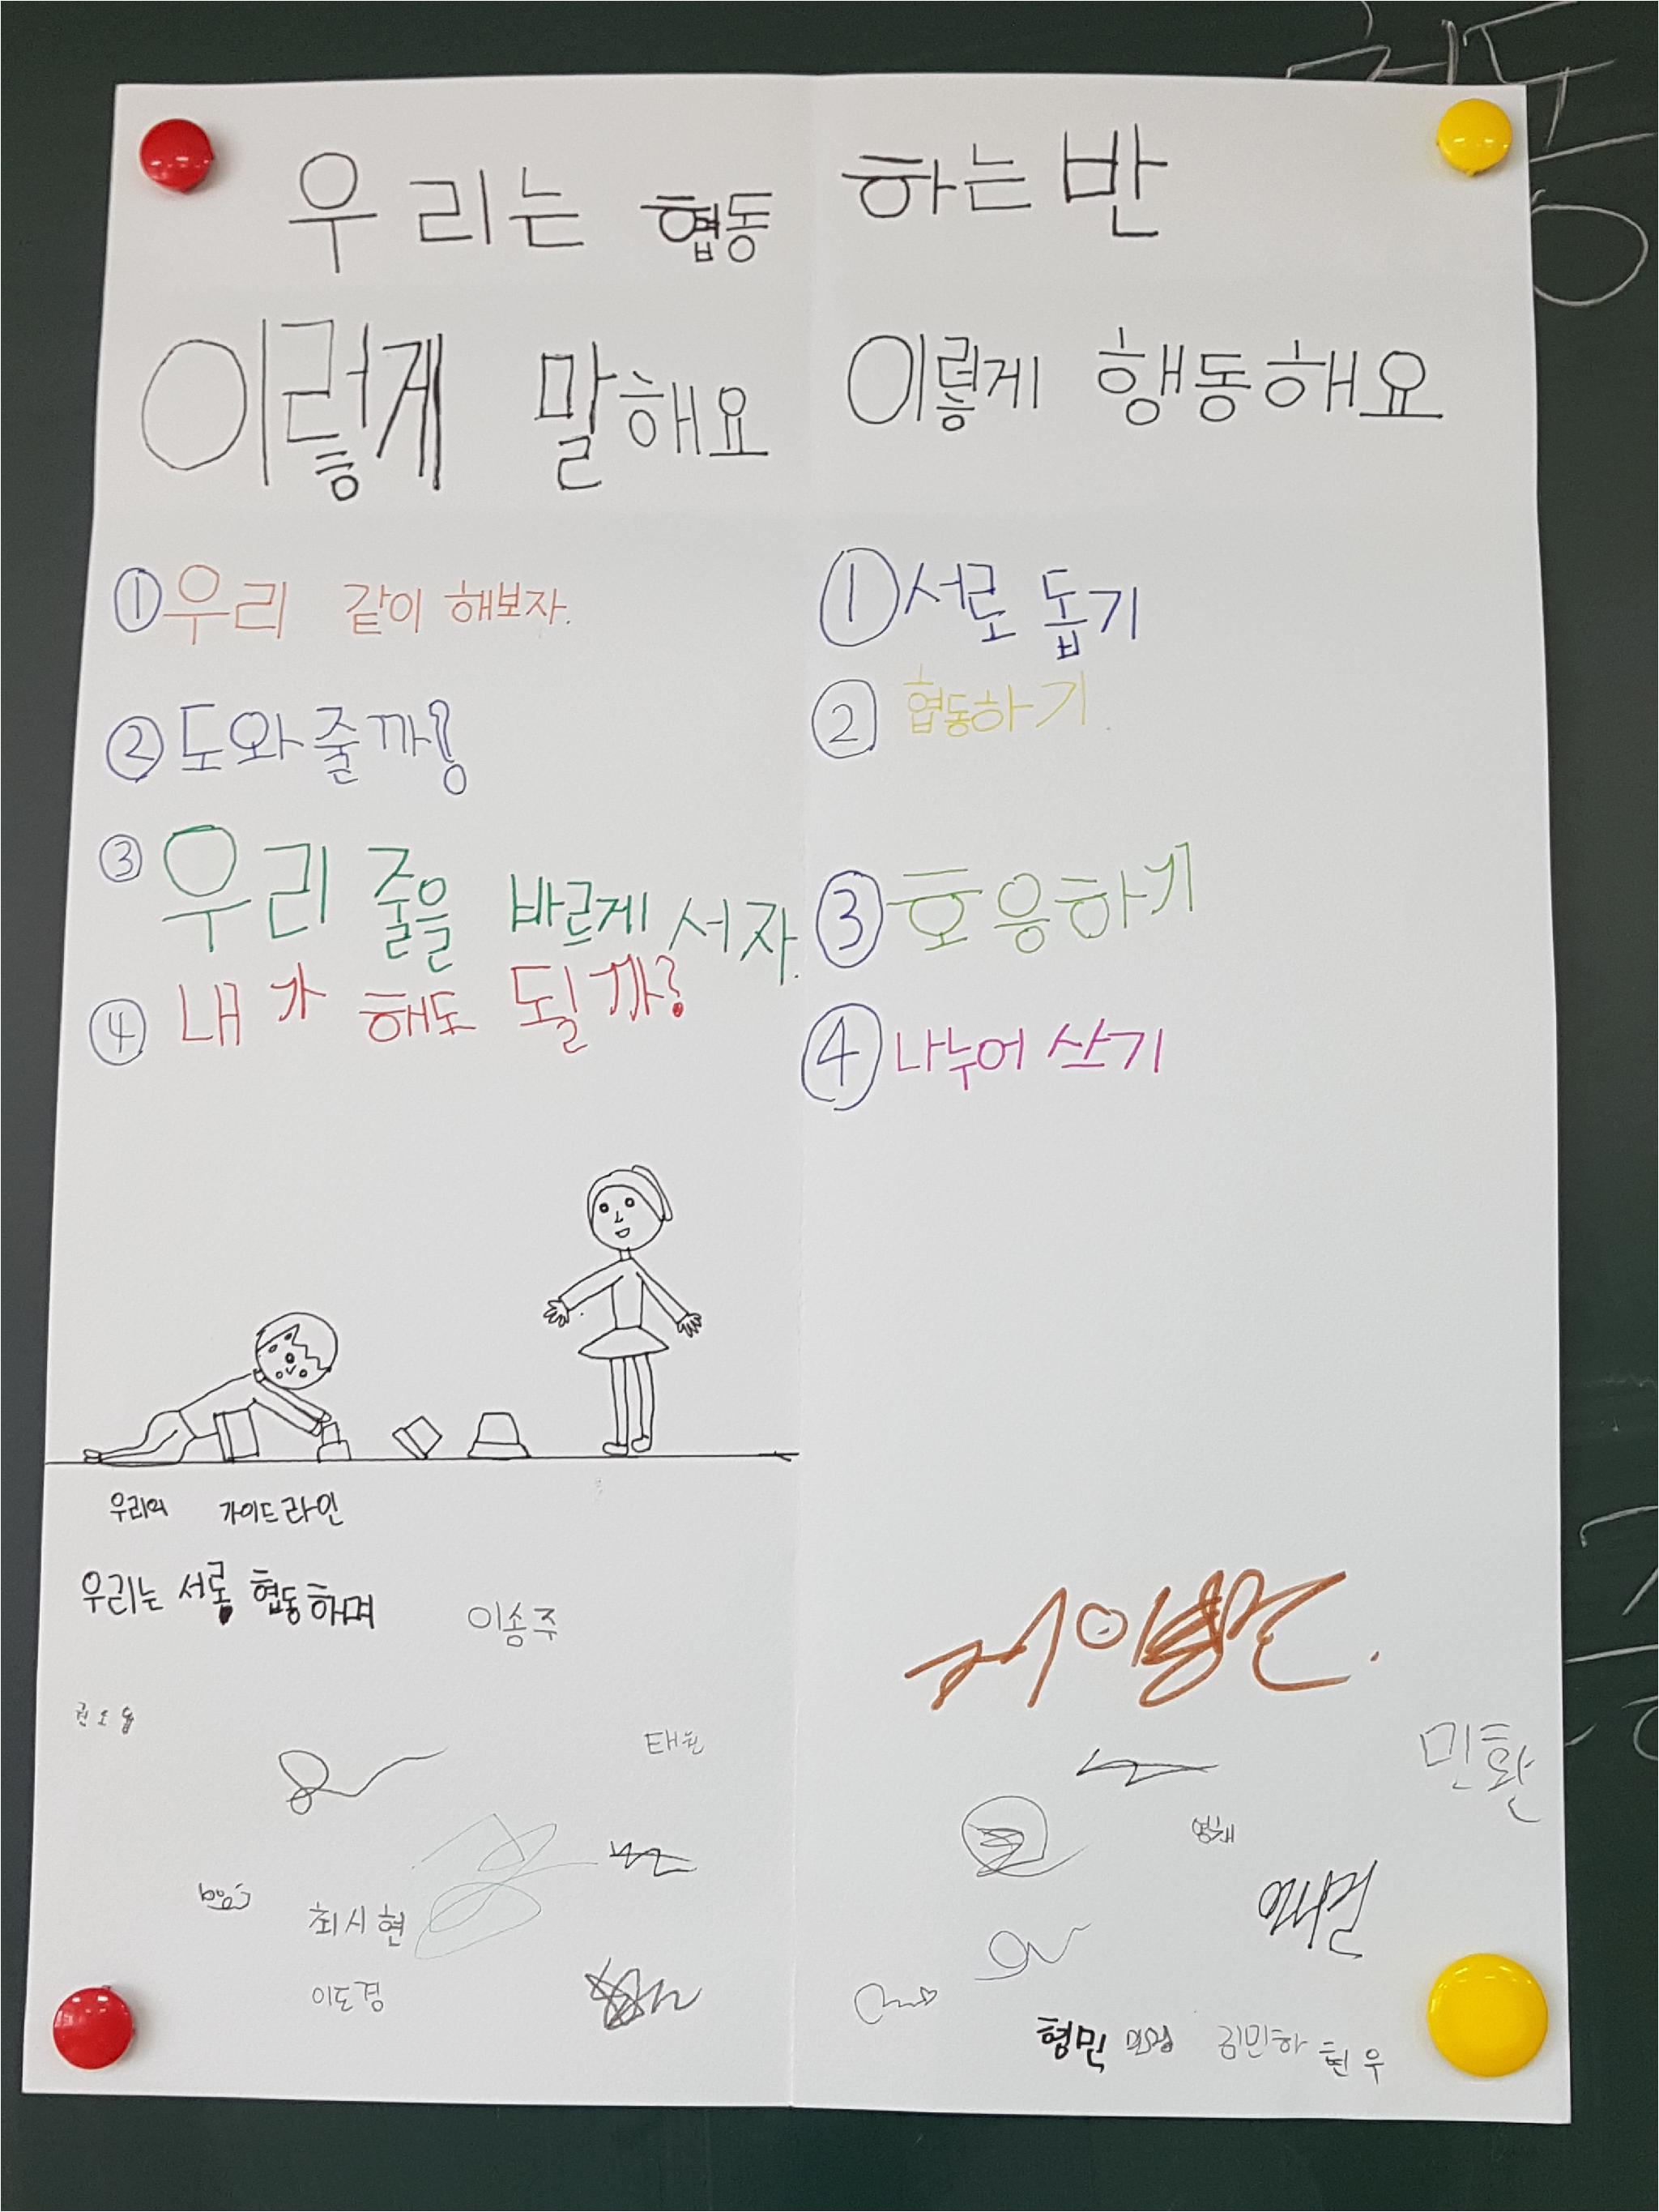 우리는 협동하는 반
이렇게 말해요
① 우리 같이 해보자.
② 도와줄까?
③ 우리 줄을 바르게 서자.
④ 내가 해도 될까?
이렇게 행동해요
① 서로 돕기
② 협동하기
③ 호응하기
④ 나누어 쓰기
우리의 가이드라인
우리는 서로 협동하며
이송주
태원
최시현
이도경
민환
영채
형민
김민하 현우